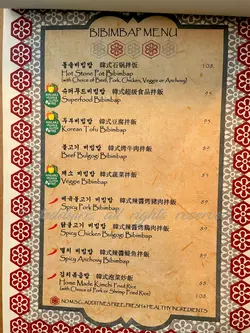 BIBIMBAP MENU
돌솥비빔밥 韓式石锅拌饭 108
Hot Stone Pot Bibimbap
(with Choice of Beef, Pork, Chicken, Veggie or Anchovy)
슈퍼푸드비빔밥 韓式超级食品拌饭
Superfood Bibimbap
두부비빔밥 韓式豆腐拌飯
Korean Tofu Bibimbap
불고기 비빔밥 韓式烤牛肉拌飯
Beef Bulgogi Bibimbap
채소 비빔밥 韓式蔬菜拌飯
Veggie Bibimbap
제육불고기 비빔밥 韓式辣醬烤豬肉拌飯
Spicy Pork Bibimbap
닭불고기 비빔밥 韓式辣醬烤鷄肉拌飯
Spicy Chicken Bulgogi Bibimbap
멸치 비빔밥 韓式辣醬鯷魚拌飯
Spicy Anchovy Bibimbap
김치볶음밥 韓式泡菜炒飯
Home Made Kimchi Fried Rice
(with Choice of Pork or Shrimp Fried Rice)
NO MSG, ADDITIVES FREE, FRESH & HEALTHY INGREDIENTS